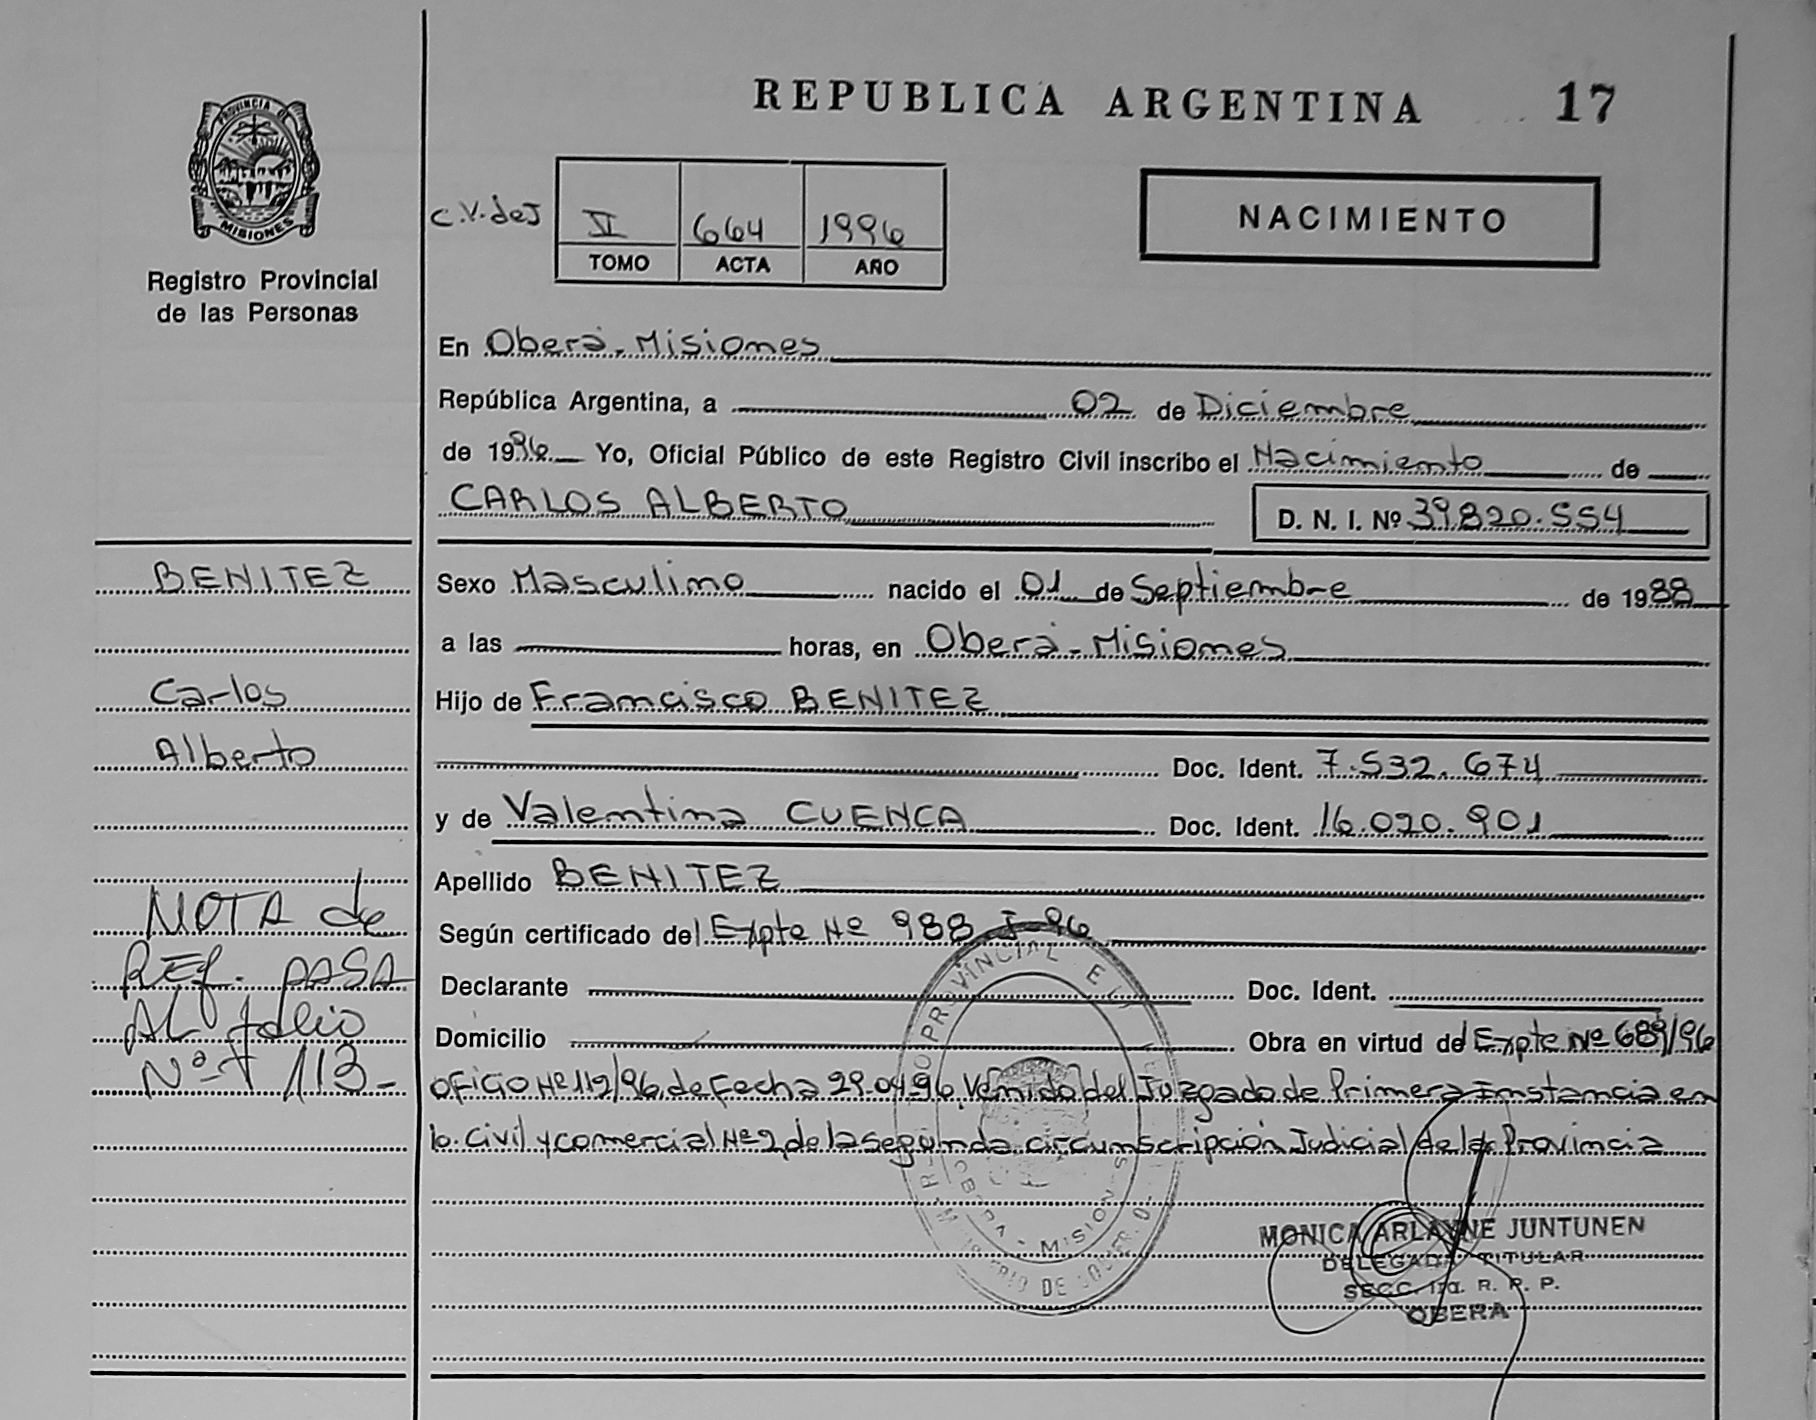 REPUBLICA ARGENTINA 17
PROVINCIA DE
MISIONES
Registro Provincial
de las Personas
C.V. de J
II 664 1996
TOMO ACTA AÑO
NACIMIENTO
En Oberá - Misiones
República Argentina, a 02 de Diciembre
de 1996 Yo, Oficial Público de este Registro Civil inscribo el Nacimiento de
CARLOS ALBERTO D. N. I. Nº 39.820.554
BENITEZ
Sexo Masculino nacido el 01 de Septiembre de 1988
a las horas, en Oberá - Misiones
Carlos
Hijo de Francisco BENITEZ
Alberto
Doc. Ident. 7.532.674
y de Valentina CUENCA Doc. Ident. 16.020.901
Apellido BENITEZ
NOTA de
Según certificado del Expte Nº 988 J-96
REf. PASA
Declarante Doc. Ident.
AL folio
Domicilio Obra en virtud del Expte Nº 689/96
Nº 113-
Oficio Nº 112/96, de Fecha 29.04.96. Venido del Juzgado de Primera Instancia en
lo Civil y comercial Nº 2, de la segunda circunscripción Judicial de la Provincia
PROVINCIAL
MISIONES
MONICA ARLAYNE JUNTUNEN
DELEGADA TITULAR
SECC. 1ra. R. P. P.
OBERA